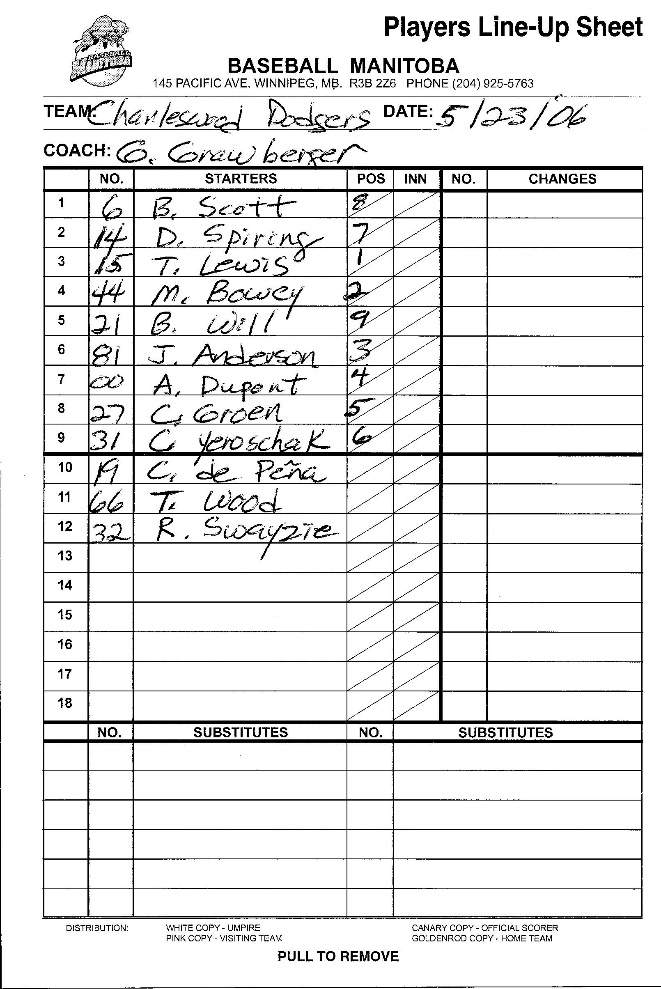 Players Line-Up Sheet
BASEBALL MANITOBA
145 PACIFIC AVE. WINNIPEG, MB. R3B 2Z6 PHONE (204) 925-5763
TEAM: Charleswood Dodgers DATE: 5/23/06
COACH: G. Grawberger
NO. STARTERS POS INN NO. CHANGES
1 6 B. Scott 8
2 14 D. Spiring 7
3 15 T. Lewis 1
4 44 M. Bowey 2
5 21 B. Will 9
6 81 J. Anderson 3
7 00 A. Dupont 4
8 27 C. Groen 5
9 31 C. Yeroschak 6
10 19 C. de Peña
11 66 T. Wood
12 32 R. Swayzie
13
14
15
16
17
18
NO. SUBSTITUTES NO. SUBSTITUTES
DISTRIBUTION: WHITE COPY - UMPIRE CANARY COPY - OFFICIAL SCORER
PINK COPY - VISITING TEAM GOLDENROD COPY - HOME TEAM
PULL TO REMOVE